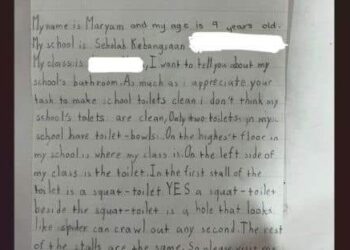 My name is Maryam and my age is 9 years old.
My school is Sekolah Kebangsaan
My class is , I want to tell you about my
school's bathroom. As much as i appreciate your
task to make school toilets clean i don't think my
school's tolets are clean, Only two toilets in my
school have toilet-bowls. On the highest floor in
my school is where my class is. On the left side of
my class is the toilet. In the first stall of the
toilet is a squat-toilet YES a squat-toilet
beside the squat-toilet is a hole that looks
like spider can crawl out any second. The rest
of the stalls are the same. So please visit